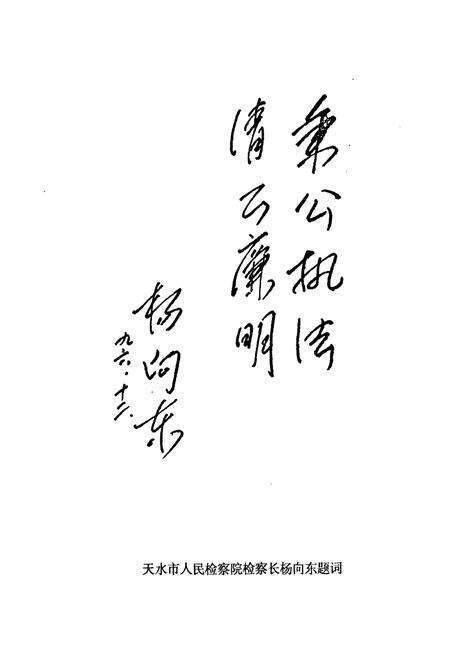 秉公执法
清正廉明
杨向东
九六.十二.
天水市人民检察院检察长杨向东题词